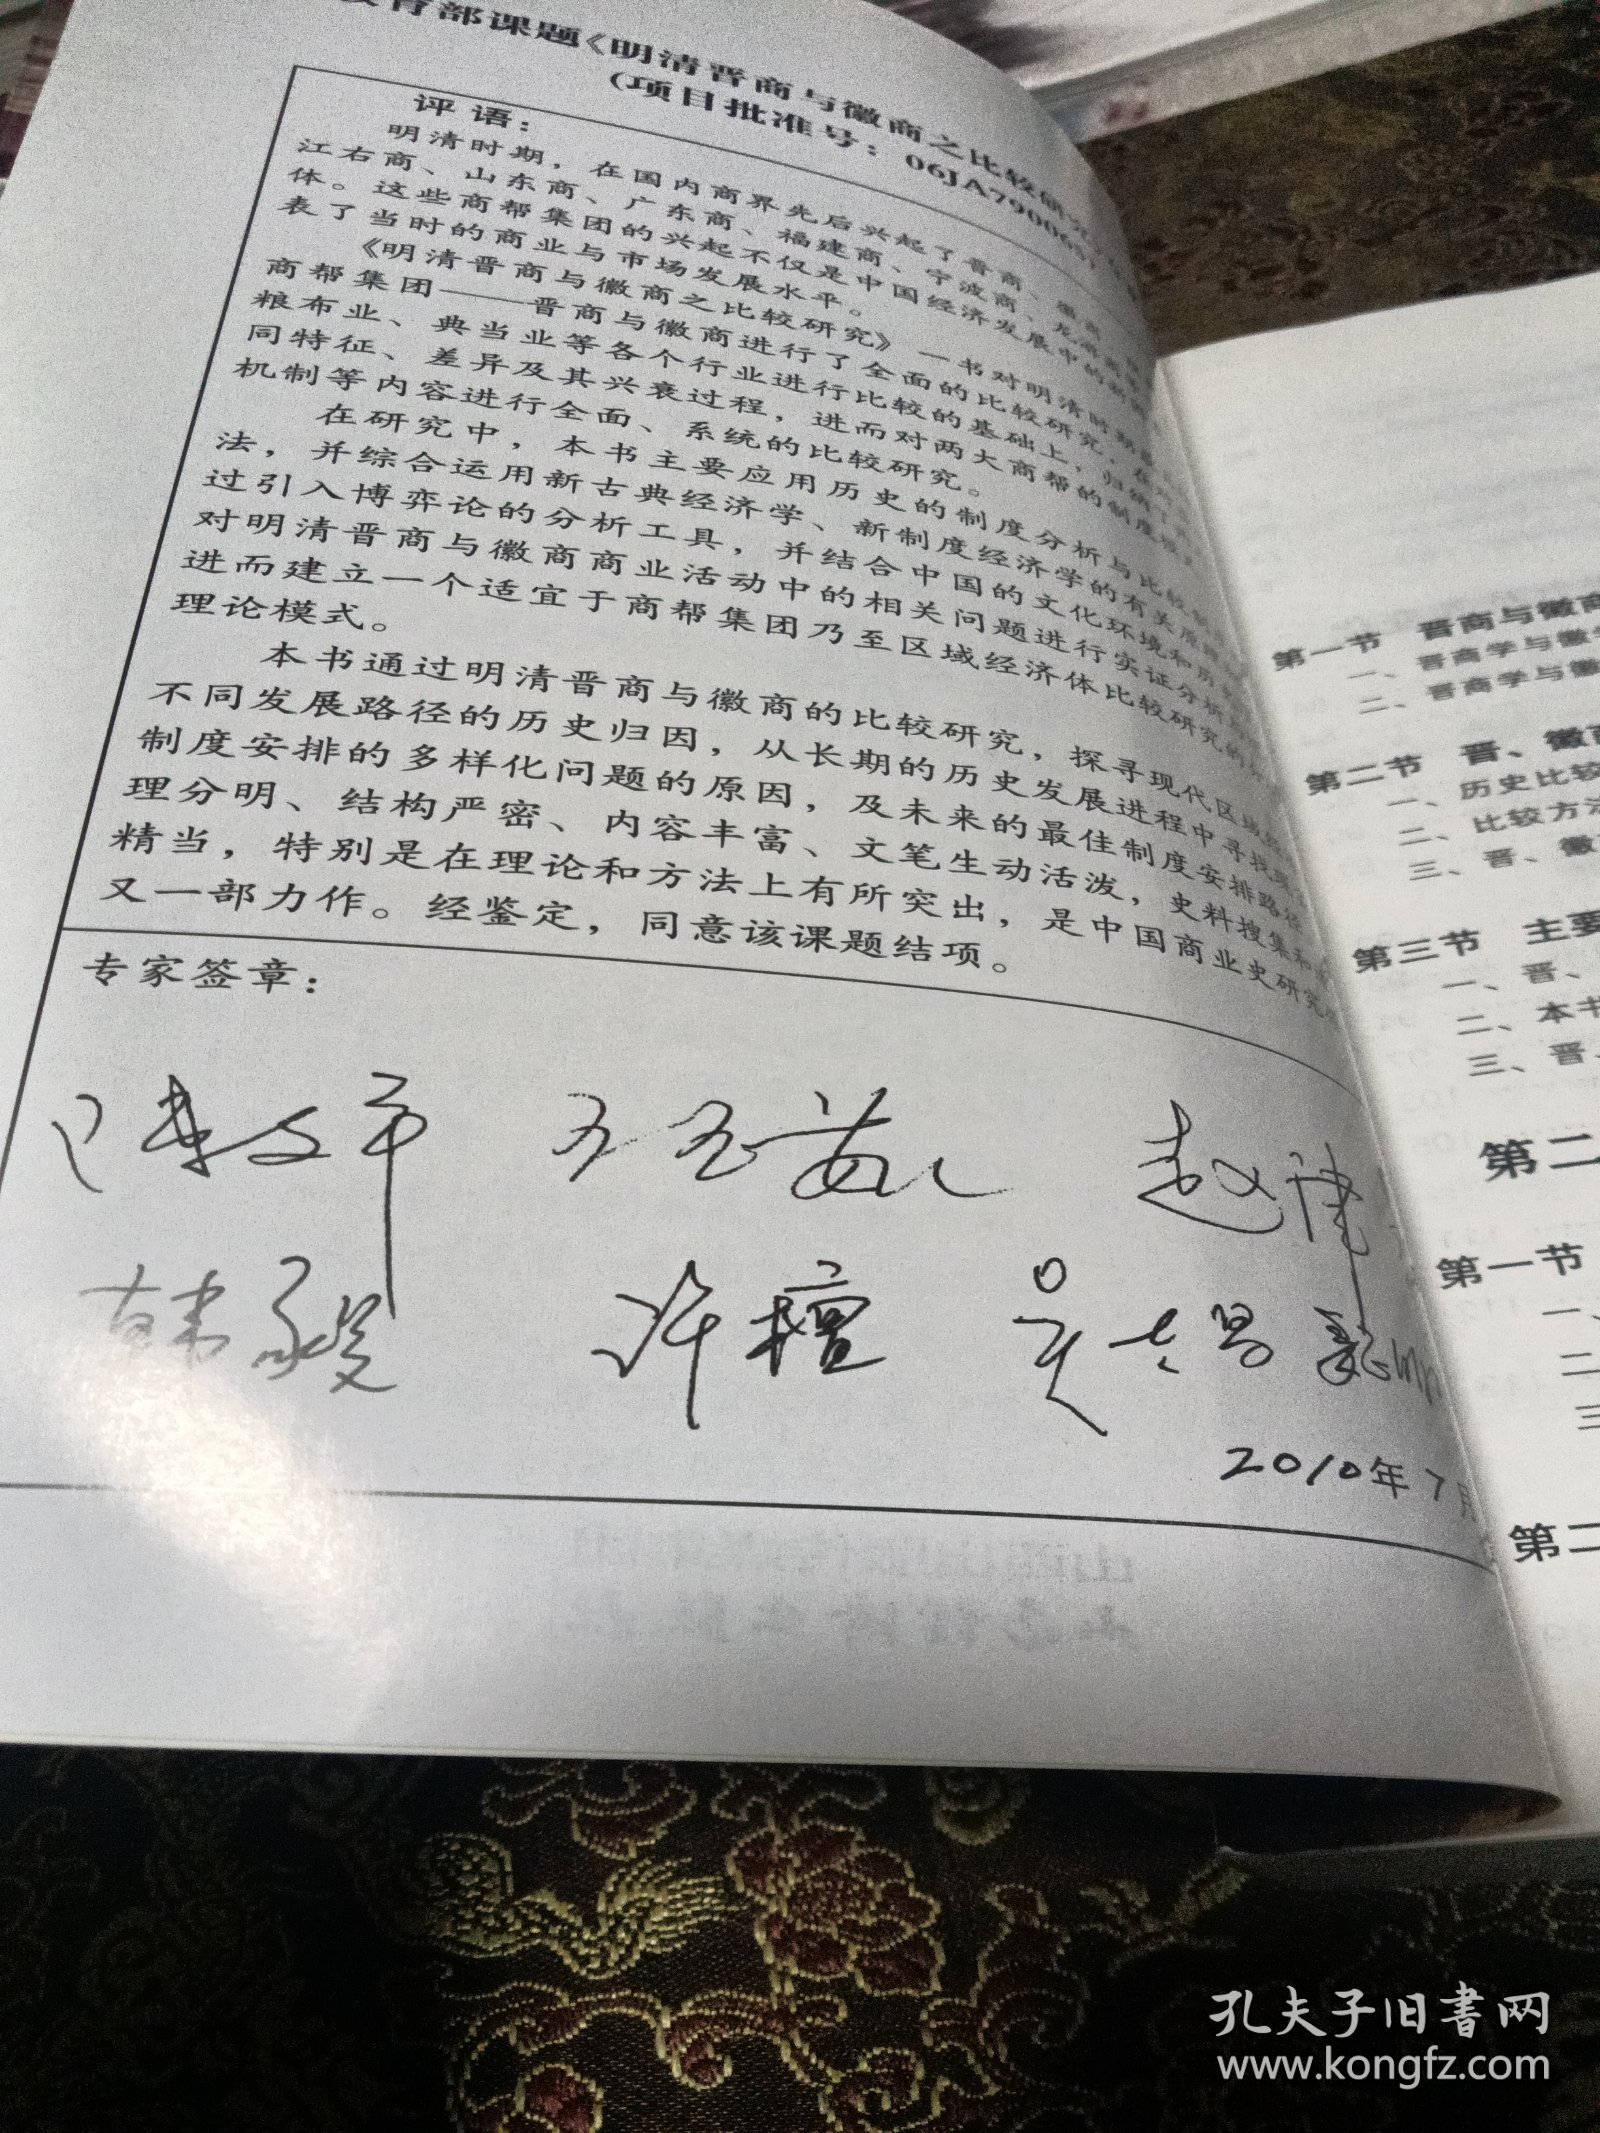 育部课题《明清晋商与徽商之比较研究
（项目批准号：06JA790065）
评语：
明清时期，在国内商界先后兴起了晋商、徽商
江右商、山东商、广东商、福建商、宁波商、龙游商等
体。这些商帮集团的兴起不仅是中国经济发展中的
表了当时的商业与市场发展水平。
《明清晋商与徽商之比较研究》一书对明清时期
商帮集团——晋商与徽商进行了全面的比较研究，在对
粮布业、典当业等各个行业进行比较的基础上，归纳了
同特征、差异及其兴衰过程，进而对两大商帮的制度
机制等内容进行全面、系统的比较研究。
在研究中，本书主要应用历史的制度分析与比较制度
法，并综合运用新古典经济学、新制度经济学的有关原
过引入博弈论的分析工具，并结合中国的文化环境和历史
对明清晋商与徽商商业活动中的相关问题进行实证分析
进而建立一个适宜于商帮集团乃至区域经济体比较研究的
理论模式。
本书通过明清晋商与徽商的比较研究，探寻现代区域经
不同发展路径的历史归因，从长期的历史发展进程中寻找
制度安排的多样化问题的原因，及未来的最佳制度安排路径
理分明、结构严密、内容丰富、文笔生动活泼，史料搜集和
精当，特别是在理论和方法上有所突出，是中国商业史研究
又一部力作。经鉴定，同意该课题结项。
专家签章：
陈支平 王玉茹 赵津
韩毅 许檀 吴士
2010年7月
第一节 晋商与徽商
一、晋商学与徽
二、晋商学与徽
第二节 晋、徽商
一、历史比较
二、比较方法
三、晋、徽
第三节 主要
一、晋、
二、本书
三、晋、
第二
第一节
一、
二
三
第二
孔夫子旧書网
www.kongfz.com